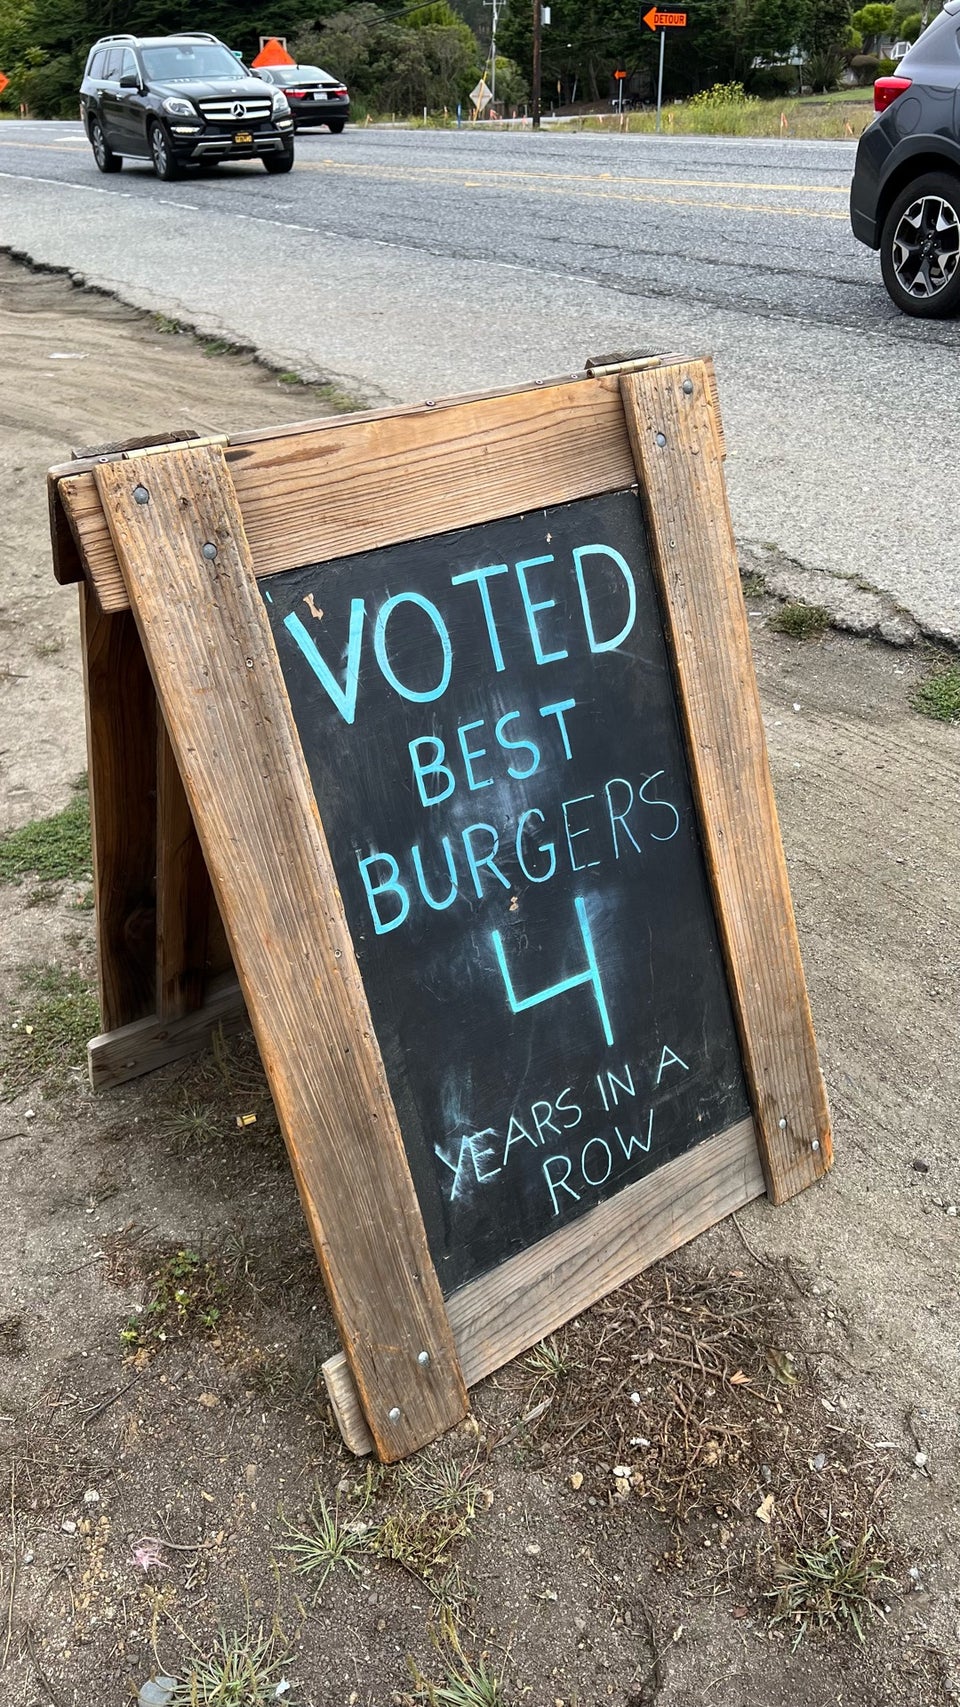 DETOUR
VOTED
BEST
BURGERS
4
YEARS IN A
ROW